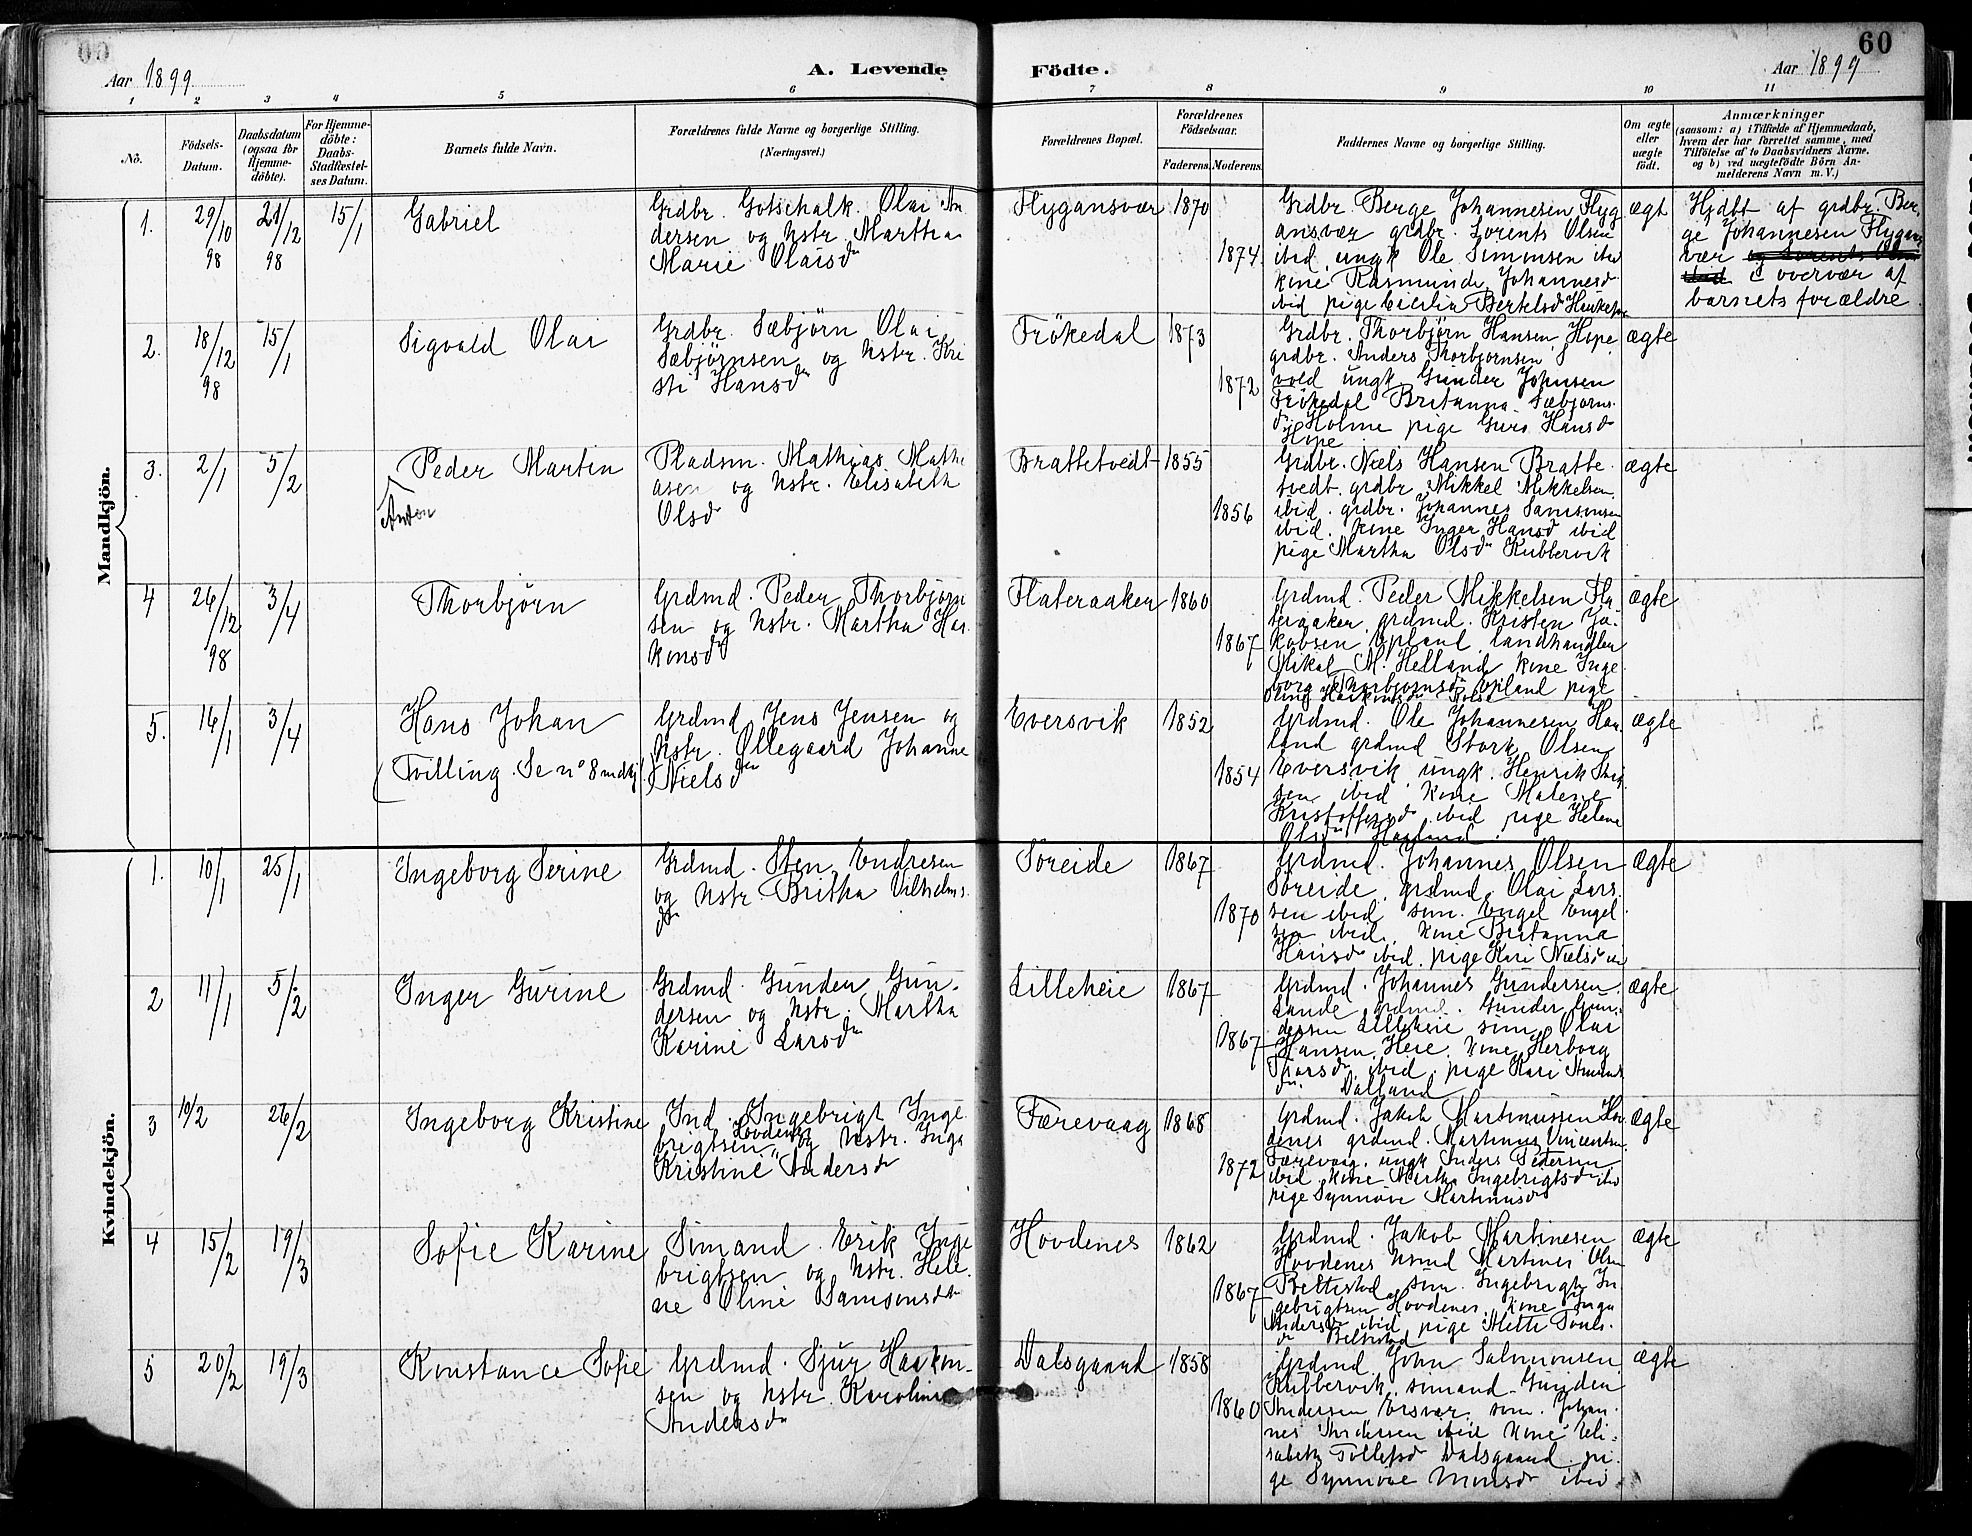 60
Aar 1899
A. Levende
Födte.
Aar 1899
1 2 3 4 5 6 7 8 9 10 11
No.
Födsels-
Datum.
Daabsdatum
(ogsaa for
Hjemme-
döbte).
For Hjemme-
döbte:
Daabs-
Stadfæstel-
ses Datum.
Barnets fulde Navn.
Forældrenes fulde Navne og borgerlige Stilling.
(Næringsvei.)
Forældrenes Bopæl.
Forældrenes
Födselsaar.
Faderens.
Moderens.
Faddernes Navne og borgerlige Stilling.
Om ægte
eller
uægte
födt.
Anmærkninger
(saasom: a) i Tilfælde af Hjemmedaab,
hvem der har forrettet samme, med
Tilföielse af to Daabsvidners Navne.
og b) ved uægtefödte Börn An-
melderens Navn m. V.)
Mandkjön.
1. 29/10 98
/12 98
15/1
Gabriel
Grdbr. Gotschalk Olai An
dersen og hstr. Martha
Marie Olaisdn
Flygansvær
1870
1874
Grdbr. Berge Johannesen Flyg
ansvær grdbr. Lorents Olsen
ibid. ungk Ole Simonsen ibid
kone Rasmunda Johannesd
ibid pige Cicilia Bertelsd
ægt
Hjdbt af grdbr. Ber,
ge Johannesen Flygans
vær og Lorents Olsen
ibid i overvær af
barnets forældre.
2. 18/12 98
15/1
Sigvald Olai
Grdbr. Sæbjörn Olai
Sæbjörnsen og hstr. Kri
sti Hansdn
Frökedal
1873
1872
Grdbr. Thorbjörn Hansen Hope
grdbr. Anders Thorbjörnsen
vold ungk Gunder Johnsen
Frökedal Britanna Sæbjörns-
dn Holme pige Guro Hansd
Hope
ægte
3. 2/1
5/2
Peder Martin
Anton
Pladsm. Mathias Mathi
asen og hstr. Elisabeth
Olsd
Brattetvedt
1855
1856
Grdbr. Niels Hansen Bratte-
tvedt. grdbr Mikkel Mikkelsen
ibid. grdbr. Johannes Samsonsen
ibid. kone Inger Hansd ibid
pige Martha Olsdn Kubbervik
ægte
4 26/12 98
3/4
Thorbjörn
Grdmd. Peder Thorbjörn
sen og hstr. Martha Haa
konsdn
Flateraaker
1860
1867
Grdmd. Peder Mikkelsen Fla-
teraaker grdmd. Kristen Ja-
kobsen Opland, landhandler
Mikal M. Helland kone Inge
borg Thorbjörnsdn Opland pige
ægte
5. 14/1
3/4
Hans Johan
(Tvilling. Se no 8 mdkj)
Grdmd Jens Jensen og
hstr. Ollegaard Johanne
Nielsdn
Eversvik
1852
1854
Grdmd. Ole Johannesen Hau
land grdmd Stork Olsen
Eversvik ungk. Henrik
sen ibid kone Malene
Kristoffersd ibid pige Helene
Olsdn Hauland.
ægte
Kvindekjön.
1. 10/1
25/1
Ingeborg Serine
Grdmd. Sten Endresen
og hstr. Britha Vilhelms-
dn
Söreide
1867
1870
Grdmd. Johannes Olsen
Söreide, grdmd. Olai Lars
sen ibid söm. Engel Engel
sen ibid. kone Britanna
Hansd ibid. pige Kari Nielsd
ægte
2 11/1
5/2
Inger Gurine
Grdmd. Gunder Gun-
dersen og hstr. Martha
Karine Larsdn
Lilleheie
1867
1867
Grdmd. Johannes Gundersen
Lande grdmd. Gunder Gun-
dersen Lilleheie söm. Olai
Hansen Heie. kone Herborg
ibid. pige Kari
dn. Dalland
ægte
3 10/2
26/2
Ingeborg Kristine
Ind. Ingebrigt Inge
brigtsen Hovdenes og hstr. Inga
Kristine Andersd
Færevaag
1868
1872
Grdmd. Jakob Martinussen Hov
denes grdmd. Martinus Vincentsen
Færevaag. ungk Anders Pedersen
ibid kone Martha Ingebrigtsd ibid
pige Synnöve Martinusd
ægte
4 15/2
19/3
Sofie Karine
Sömand. Erik Inge
brigtsen og hstr. Hele
ne Oline Samsonsdn
Hovdenes
1862
1867
Grdmd. Jakob Martinesen
Hovdenes hsmd Martines Olsen
Beltestad söm. Ingebrigt In
gebrigtsen Hovdenes. kone Inga
Andersd ibid pige Mette
dn Beltestad
ægte
5 20/2
19/3
Konstance Sofie
Grdmd. Sjur Haakon-
sen og hstr Karoline
Andersdn
Dalsgaard
1858
1860
Grdmd John Salomonsen
Kubbervik. sömand. Gunder
Andersen Ersvær. söm. Johan-
nes Andersen Heie kone Eli-
sabeth Tollefsd Dalsgaard pi-
ge Synnöve Monsd ibid
ægte